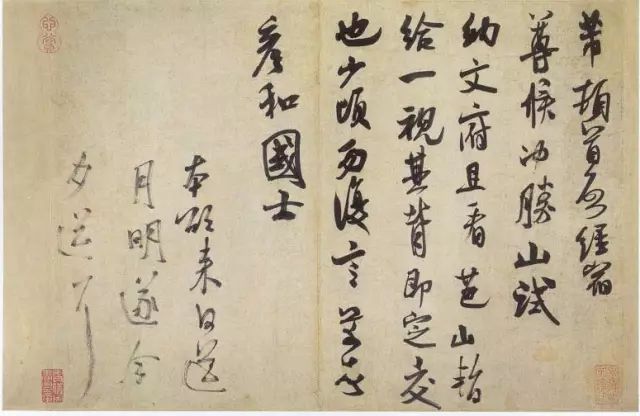 芾頓首啓經宿
尊候冲勝山試
納文府且看芭山暫
給一視其背即定交
也少頃勿復言芾頓首
彦和國士
本欲来日送
月明遂今
夕送耳